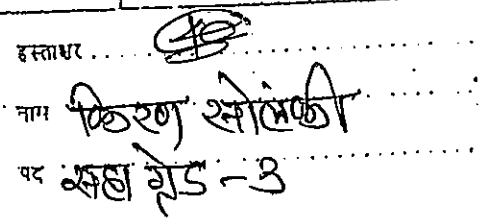 हस्ताक्षर ............
नाम किरण सोलंकी
पद सहा ग्रेड -3